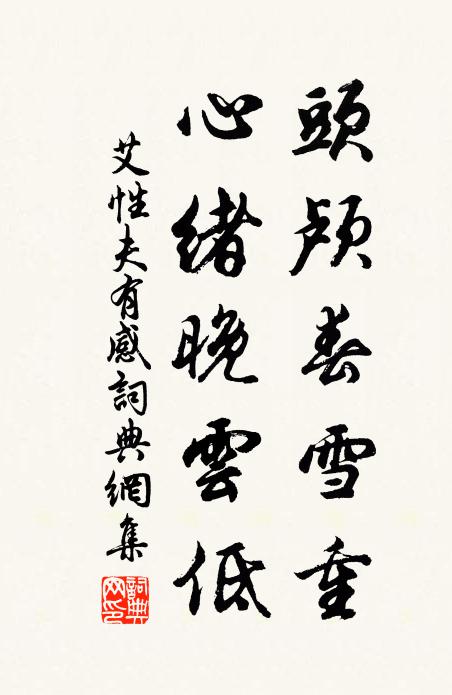 頭顱春雪重
心緒晚雲低
艾性夫有感詞典網集
詞典
网印